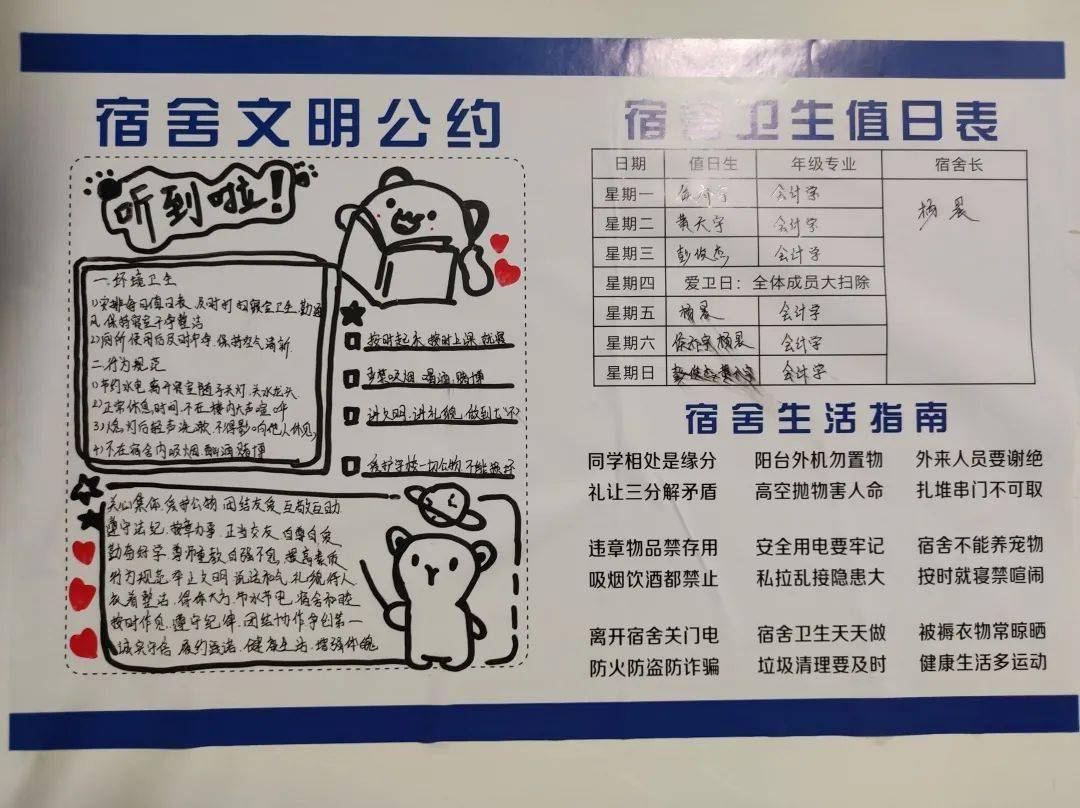 宿舍文明公约
听到啦!
一.环境卫生
1)安排每日值日表,及时打扫寝室卫生,勤通
风,保持寝室干净整洁
2)厕所使用后及时冲,保持空气清新.
二.行为规范
1)节约水电,离开寝室随手关灯,关水龙头
2)正常休息时间,不在楼内大声喧哗
3)熄灯后轻声洗漱,不得影响他人休息
4)不在宿舍内吸烟,酗酒,赌博
按时起床,按时上课,就寝
吸烟.喝酒.赌博
讲文明.讲礼貌,做到
爱护学校一切公物,不能
关心集体,爱护公物,团结友爱,互敬互助.
遵守法纪,按章办事,正当交友,自尊自爱
勤奋好学,尊师重教,自强不息,提高素质
行为规范,举止文明,说话和气,礼貌待人
衣着整洁,得体大方,节水节电,宿舍
按时作息,遵守纪律,团结协作,争创第一
诚实守信,履约践诺,健康生活,增强体魄
宿舍卫生值日表
日期 值日生 年级专业 宿舍长
星期一 会计学 杨晨
星期二 黄天宇 会计学
星期三 彭俊杰 会计学
星期四 爱卫日：全体成员大扫除
星期五 杨晨 会计学
星期六 杨晨 会计学
星期日 会计学
宿舍生活指南
同学相处是缘分 阳台外机勿置物 外来人员要谢绝
礼让三分解矛盾 高空抛物害人命 扎堆串门不可取
违章物品禁存用 安全用电要牢记 宿舍不能养宠物
吸烟饮酒都禁止 私拉乱接隐患大 按时就寝禁喧闹
离开宿舍关门电 宿舍卫生天天做 被褥衣物常晾晒
防火防盗防诈骗 垃圾清理要及时 健康生活多运动